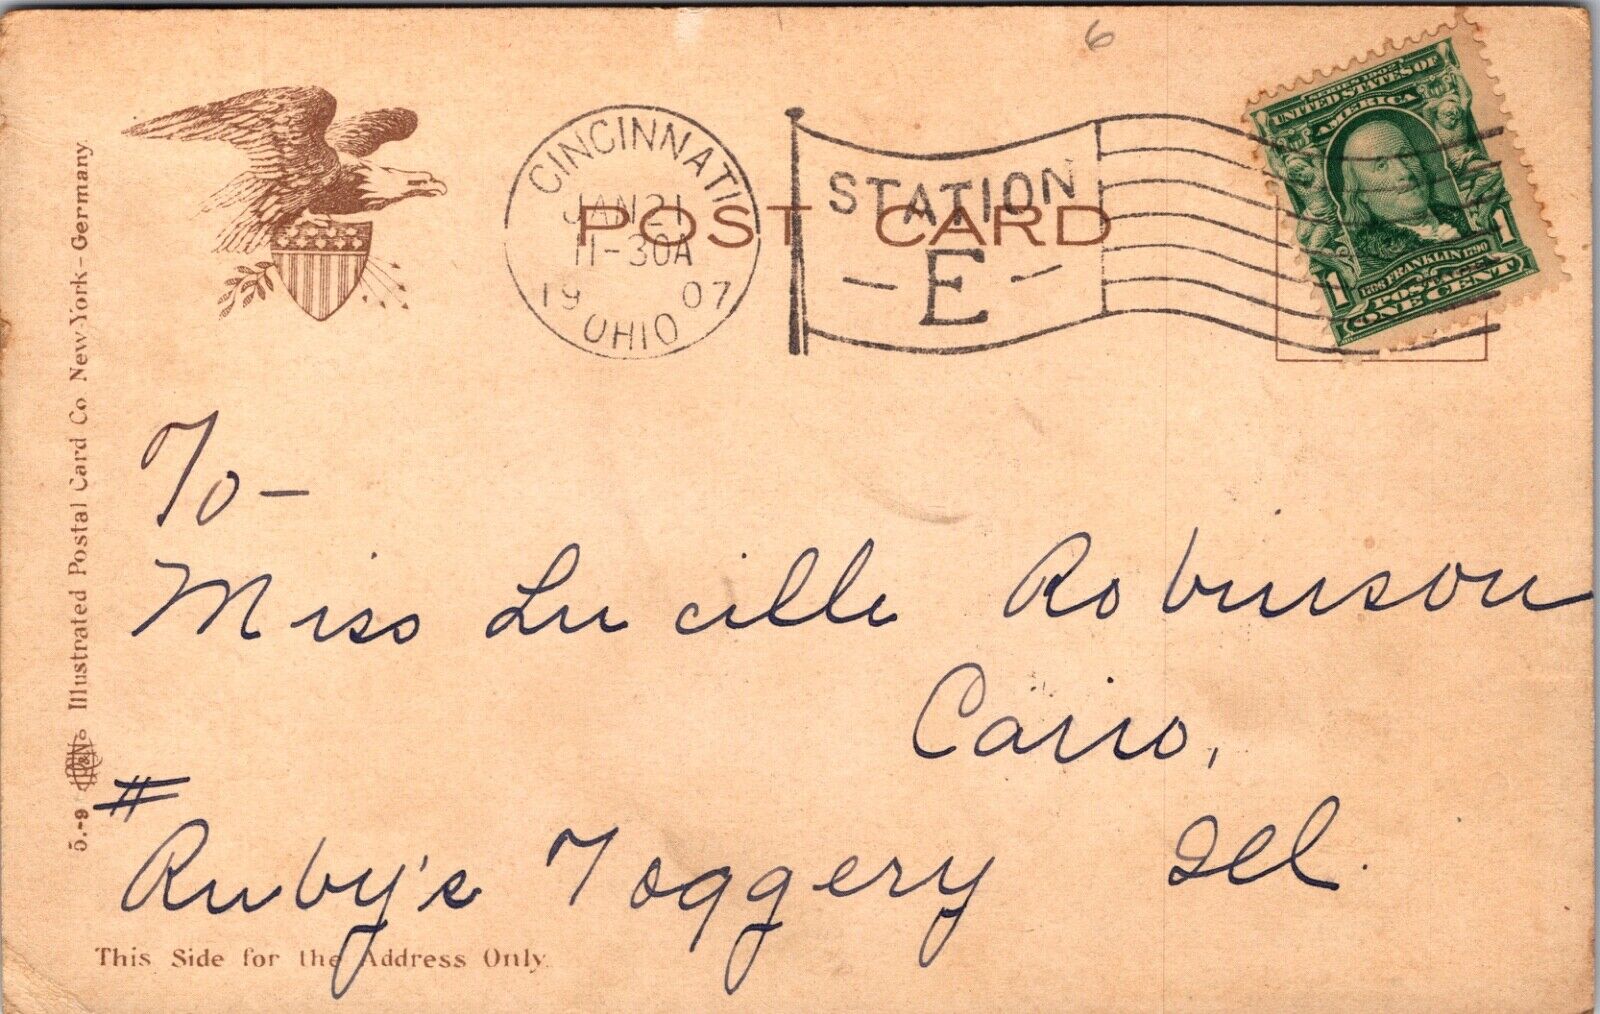 6
SERIES 1902
UNITED STATES OF
AMERICA
1 1
1706 FRANKLIN 1790
POSTAGE
ONE CENT
CINCINNATI
JAN 21
11-30A
1907
OHIO
STATION
- E -
POST CARD
5.-9 Illustrated Postal Card Co. New-York-Germany.
To-
Miss Lucille Robinson
Cairo,
Ill.
#
Ruby's Toggery
This Side for the Address Only.